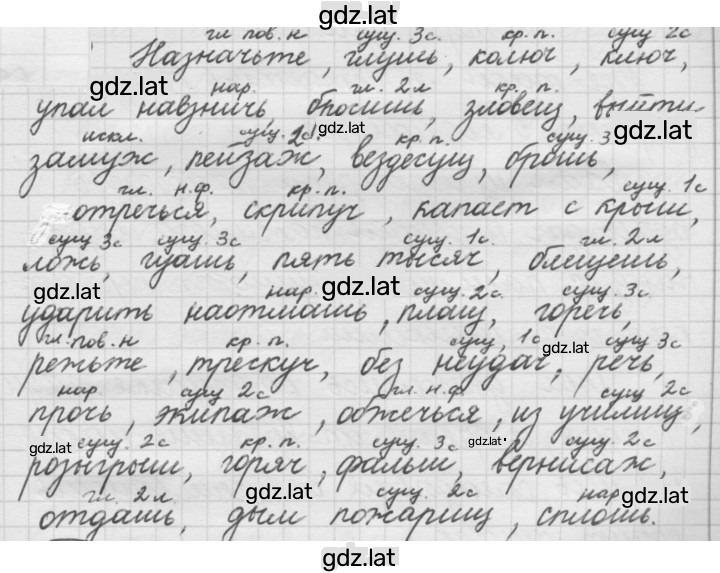 gdz.lat
гл пов. н сущ. 3с кр. п. сущ 2с
Назначьте, глушь, колюч, ключ,
gdz.lat
нар. гл. 2л кр. п.
упал навзничь, бросишь, зловещ, выйти
gdz.lat
искл. сущ. 2с кр. п. сущ. 3
gdz.lat
замуж, пейзаж, вездесущ, брошь,
гл. н.ф. кр. п. сущ. 1с
отречься, скрипуч, капает с крыш,
сущ 3с сущ. 3с сущ. 1с. гл. 2л
ложь, гуашь, пять тысяч, блещешь,
gdz.lat gdz.lat
нар. сущ. 2с сущ. 3с
ударить наотмашь, плащ, горечь,
гл. пов. н кр. п. сущ, 1с сущ 3с
gdz.lat
режьте, трескуч, без неудач, речь,
нар сущ 2с гл. н.ф. сущ 2с
прочь, экипаж, обжечься, из училищ,
gdz.lat сущ. 2с кр. п. сущ. 3с gdz.lat сущ. 2с
розыгрыш, горяч, фальш, вернисаж,
гл. 2л gdz.lat сущ. 2с нар gdz.lat
отдашь, дым пожарищ, сплошь.
gdz.lat